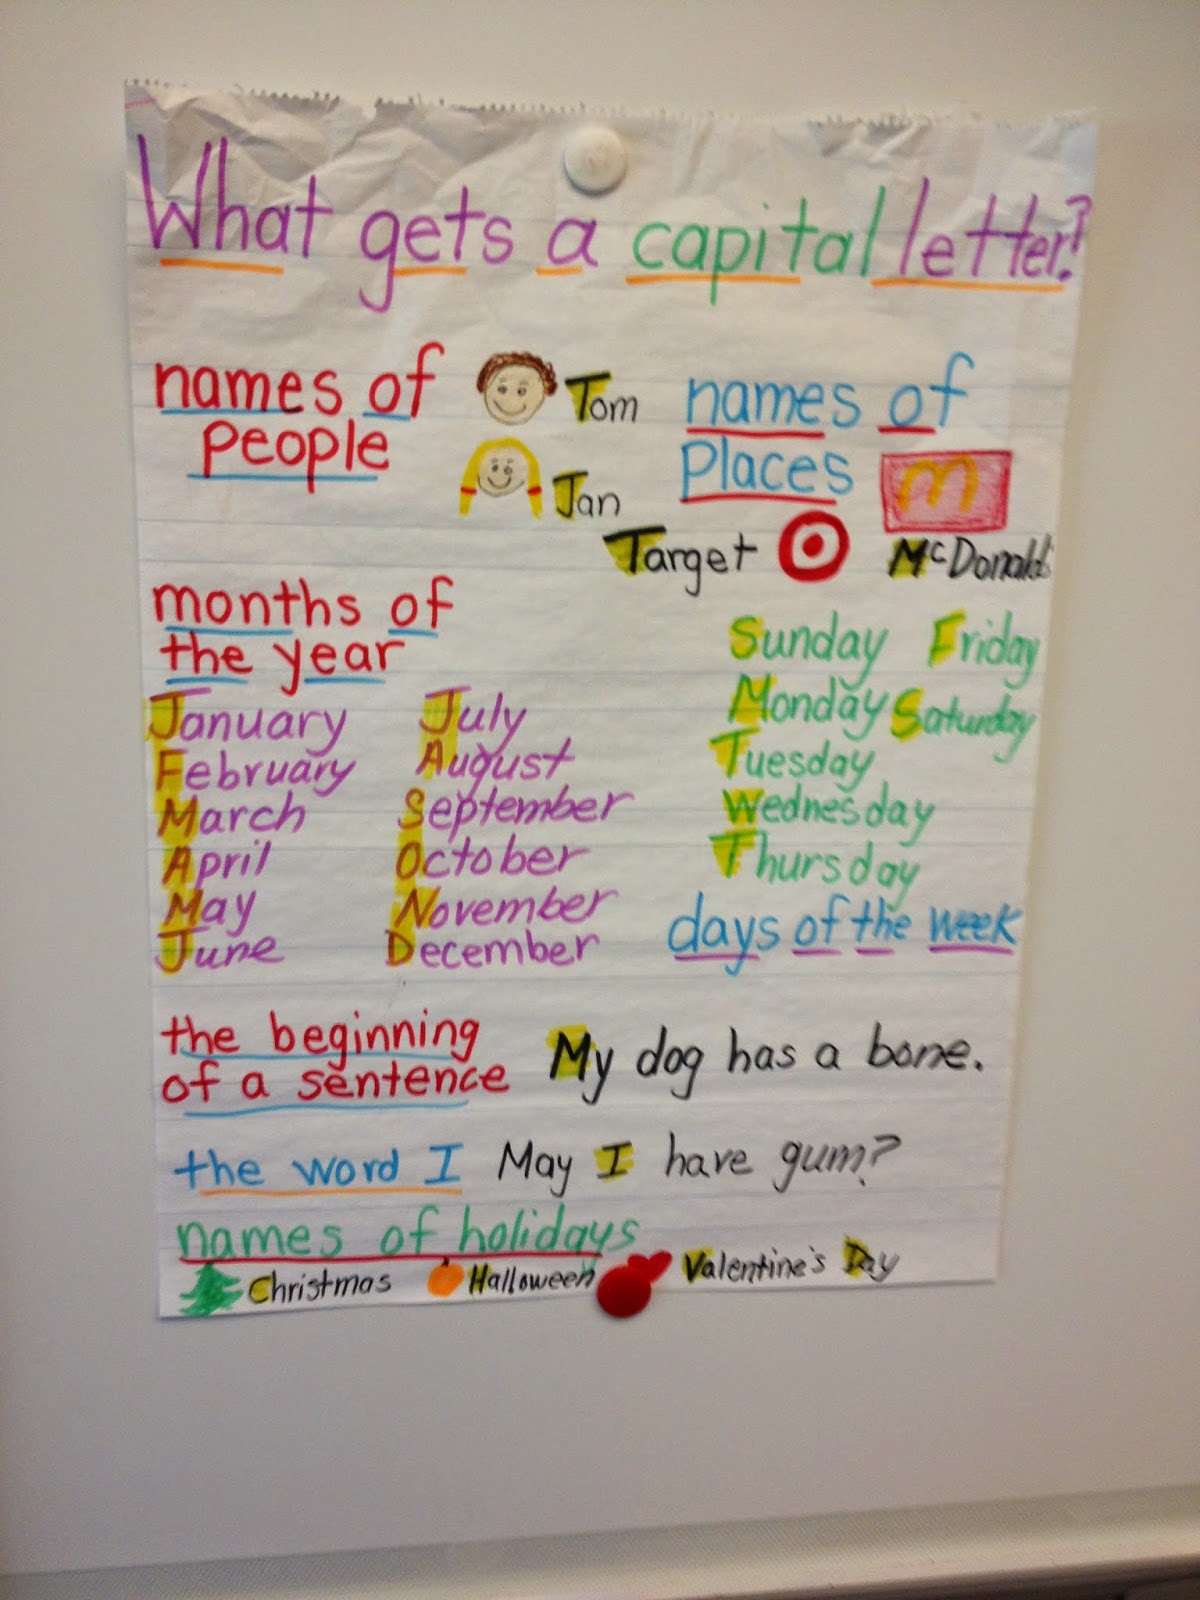 What gets a capital letter?
names of
people
Tom
Jan
names of
places
M
Target
McDonald's
months of
the year
January
February
March
April
May
June
July
August
September
October
November
December
Sunday
Monday
Tuesday
Wednesday
Thursday
Friday
Saturday
days of the week
the beginning
of a sentence
My dog has a bone.
the word I
May I have gum?
names of holidays
Christmas
Halloween
Valentine's Day